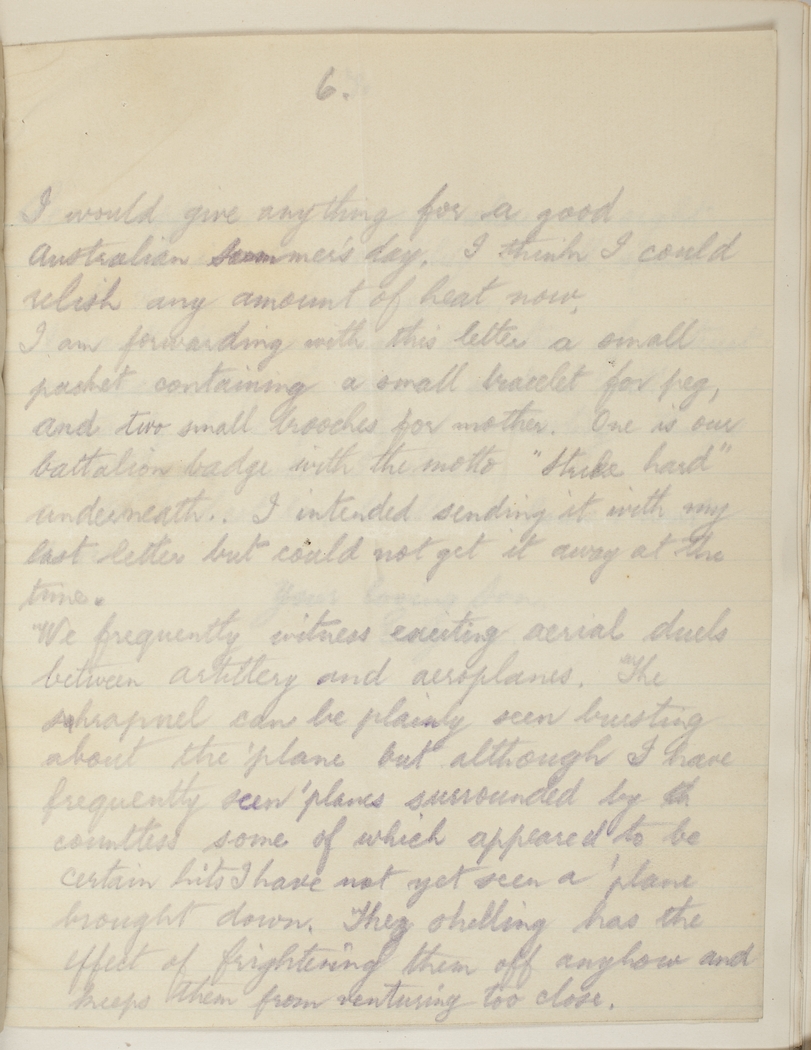 6.
I would give anything for a good
Australian summer's day. I think I could
relish any amount of heat now.
I am forwarding with this letter a small
packet containing a small bracelet for peg,
and two small brooches for mother. One is our
battalion badge with the motto "Strike hard"
underneath.. I intended sending it with my
last letter but could not get it away at the
time.
We frequently witness exciting aerial duels
between artillery and aeroplanes. The
schrapnel can be plainly seen bursting
about the 'plane but although I have
frequently seen 'planes surrounded by
countless some of which appeared to be
certain hits I have not yet seen a 'plane
brought down. They shelling has the
effect of frightening them off anyhow and
keeps them from venturing too close.